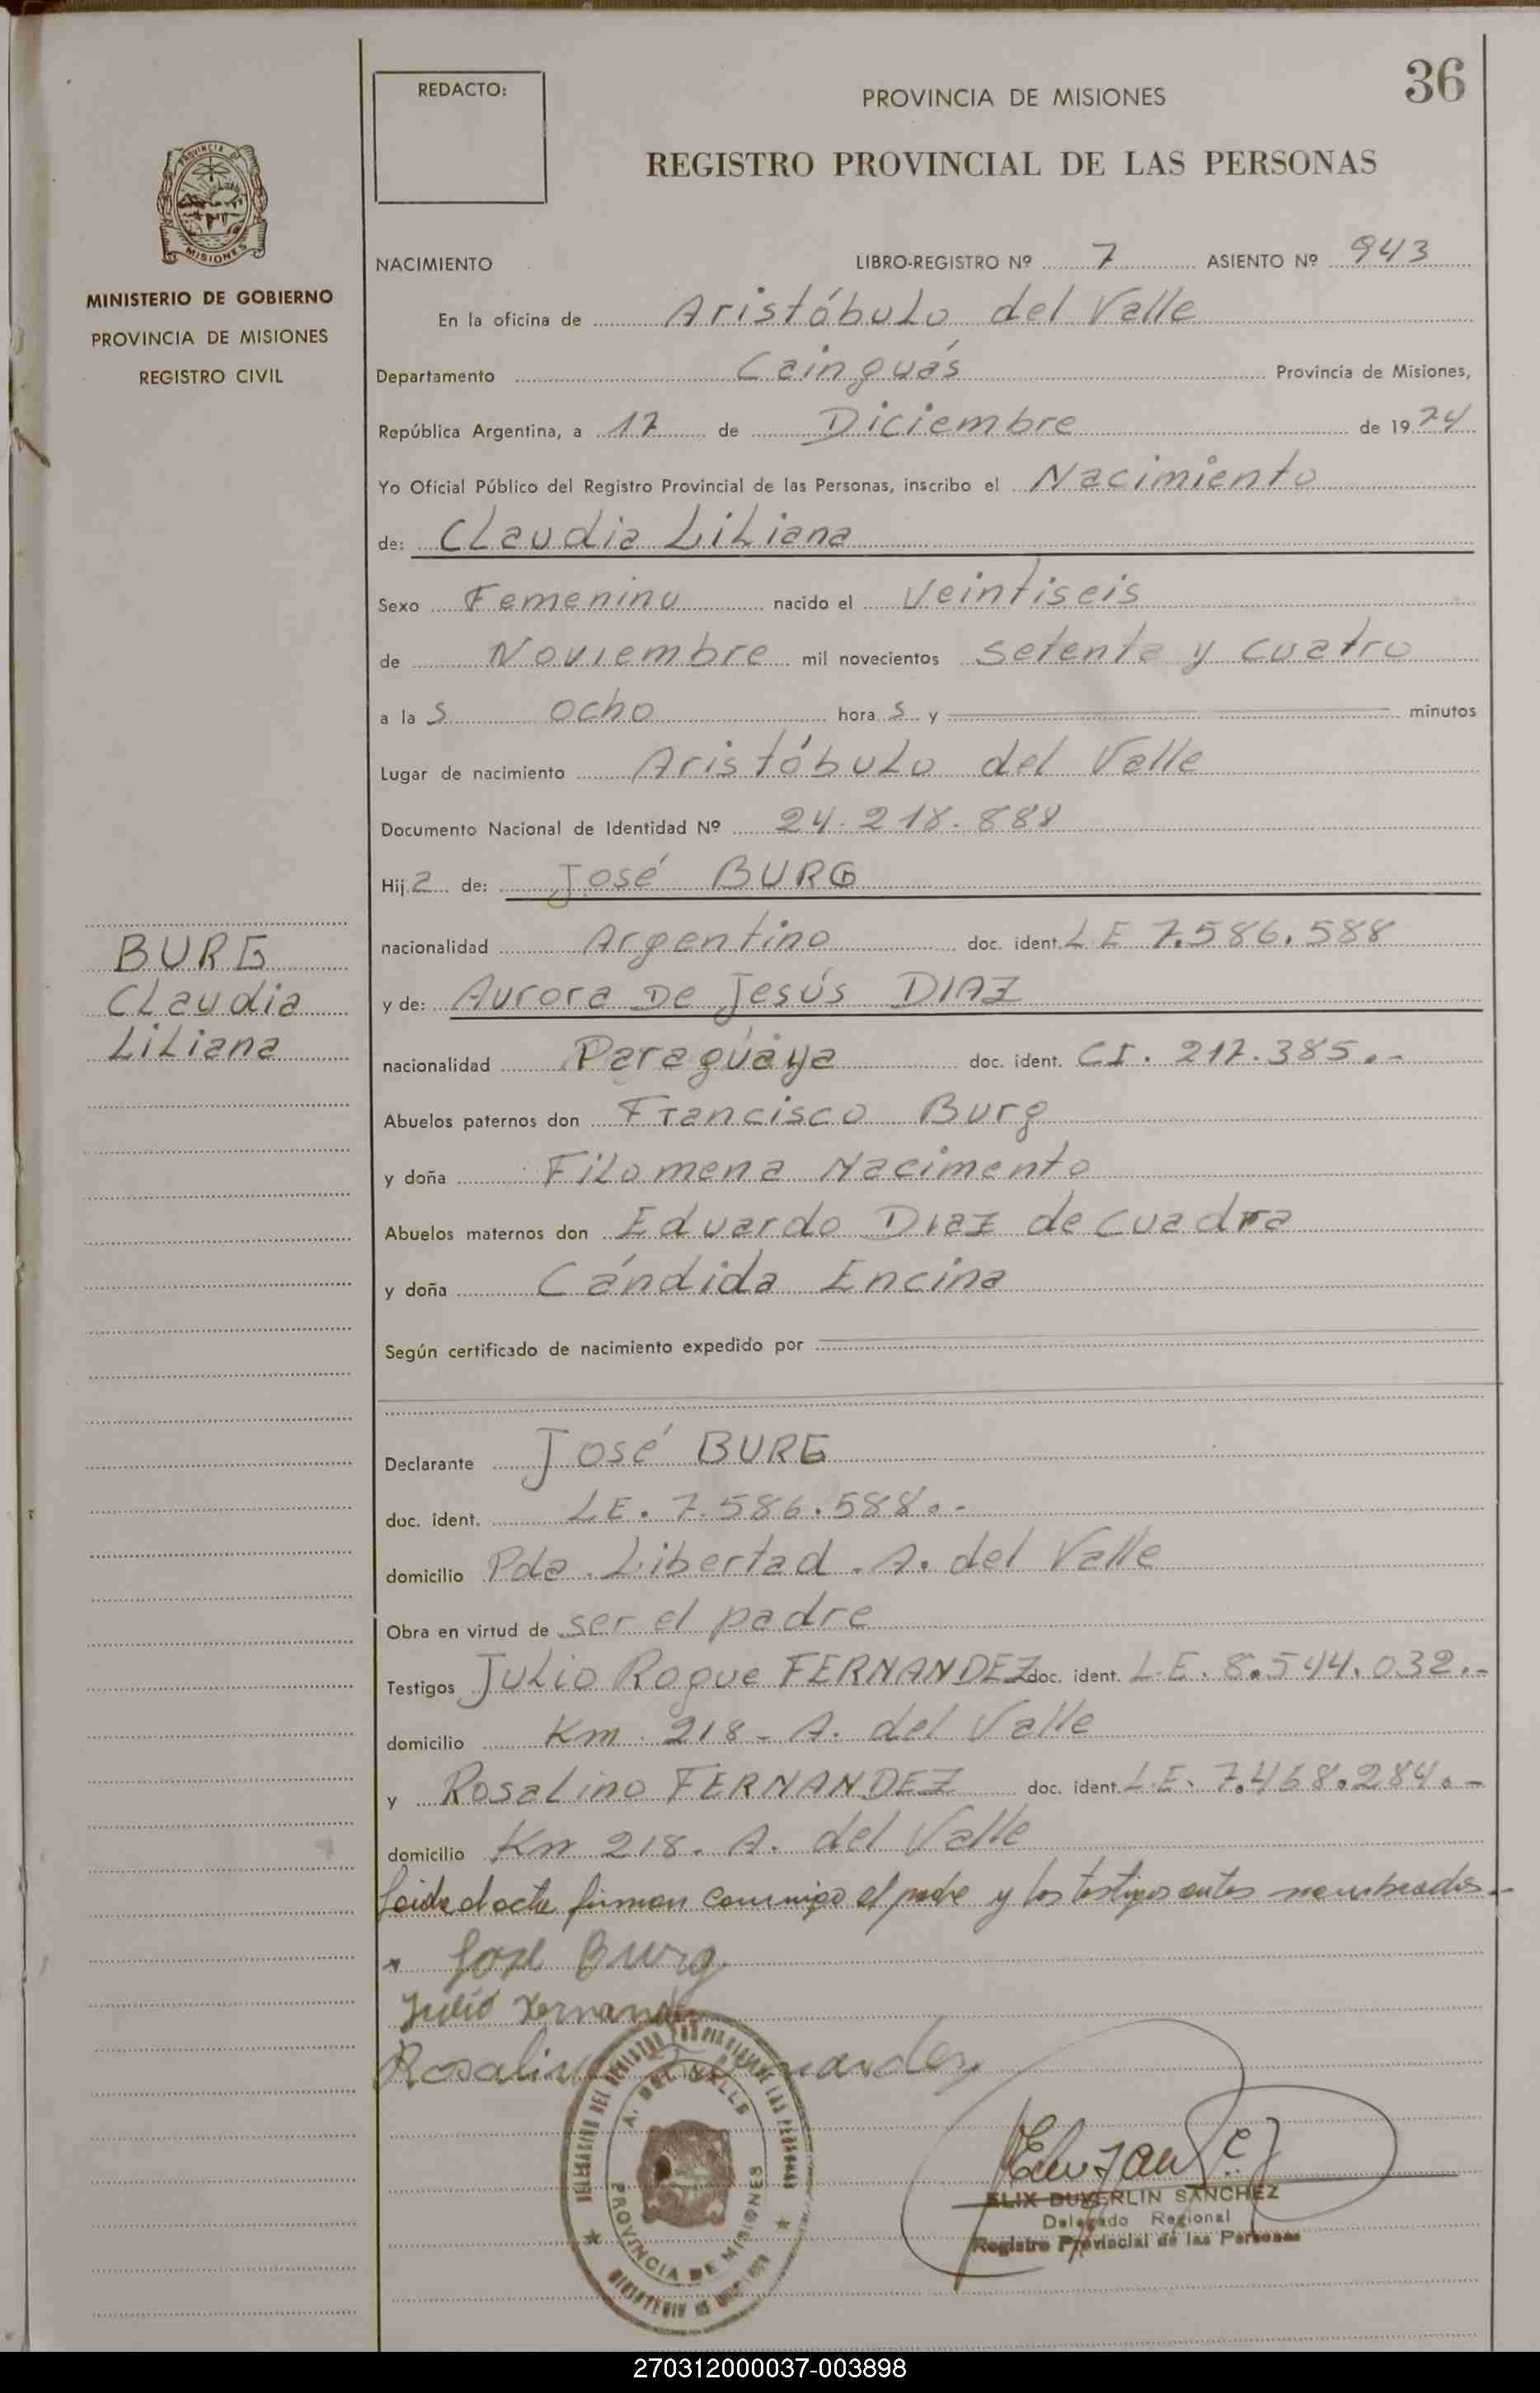 36
REDACTO:
PROVINCIA DE MISIONES
REGISTRO PROVINCIAL DE LAS PERSONAS
PROVINCIA DE
MISIONES
MINISTERIO DE GOBIERNO
PROVINCIA DE MISIONES
REGISTRO CIVIL
NACIMIENTO LIBRO-REGISTRO Nº 7 ASIENTO Nº 943
En la oficina de Aristóbulo del Valle
Departamento Cainguás Provincia de Misiones,
República Argentina, a 17 de Diciembre de 1974
Yo Oficial Público del Registro Provincial de las Personas, inscribo el Nacimiento
de: Claudia Liliana
Sexo Femenino nacido el Veintiseis
de Noviembre mil novecientos setenta y cuatro
a las ocho horas y minutos
Lugar de nacimiento Aristóbulo del Valle
Documento Nacional de Identidad Nº 24.218.888
Hija de: José BURG
nacionalidad Argentino doc. ident. LE 7.586.588
y de: Aurora De Jesús DIAZ
nacionalidad Paraguaya doc. ident. CI. 217.385.-
BURG
Claudia
Liliana
Abuelos paternos don Francisco Burg
y doña Filomena Nacimento
Abuelos maternos don Eduardo Diaz de Cuadra
y doña Cándida Encina
Según certificado de nacimiento expedido por
Declarante José BURG
doc. ident. LE. 7.586.588.-
domicilio Pda. Libertad. A. del Valle
Obra en virtud de ser el padre
Testigos Julio Roque FERNANDEZ doc. ident. L.E. 8.544.032.-
domicilio Km. 218- A. del Valle
y Rosalino FERNANDEZ doc. ident. L.E. 7.468.284.-
domicilio Km 218. A. del Valle
Leida el acta firman conmigo el padre y los testigos antes nombrados.-
José Burg
Julio Fernandez
Rosalino Fernandez
DELEGACION DEL REGISTRO PROVINCIAL DE LAS PERSONAS
A. DEL VALLE
PROVINCIA DE MISIONES
MINISTERIO DE GOBIERNO
ELIX DUVERLIN SANCHEZ
Delegado Regional
Registro Provincial de las Personas
270312000037-003898